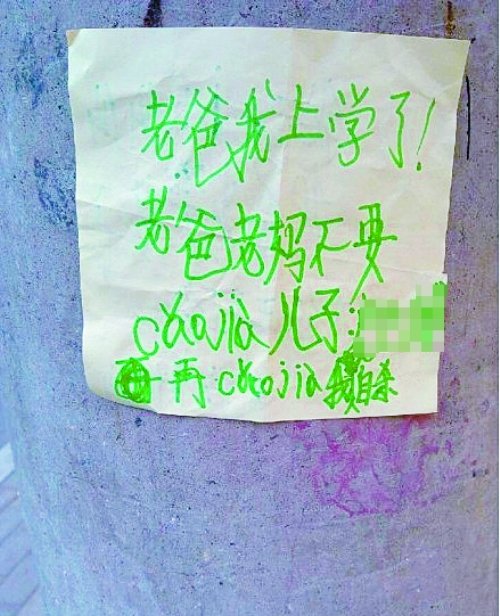 老爸我上学了!
老爸老妈不要
chaojia儿子:
再chaojia我自杀